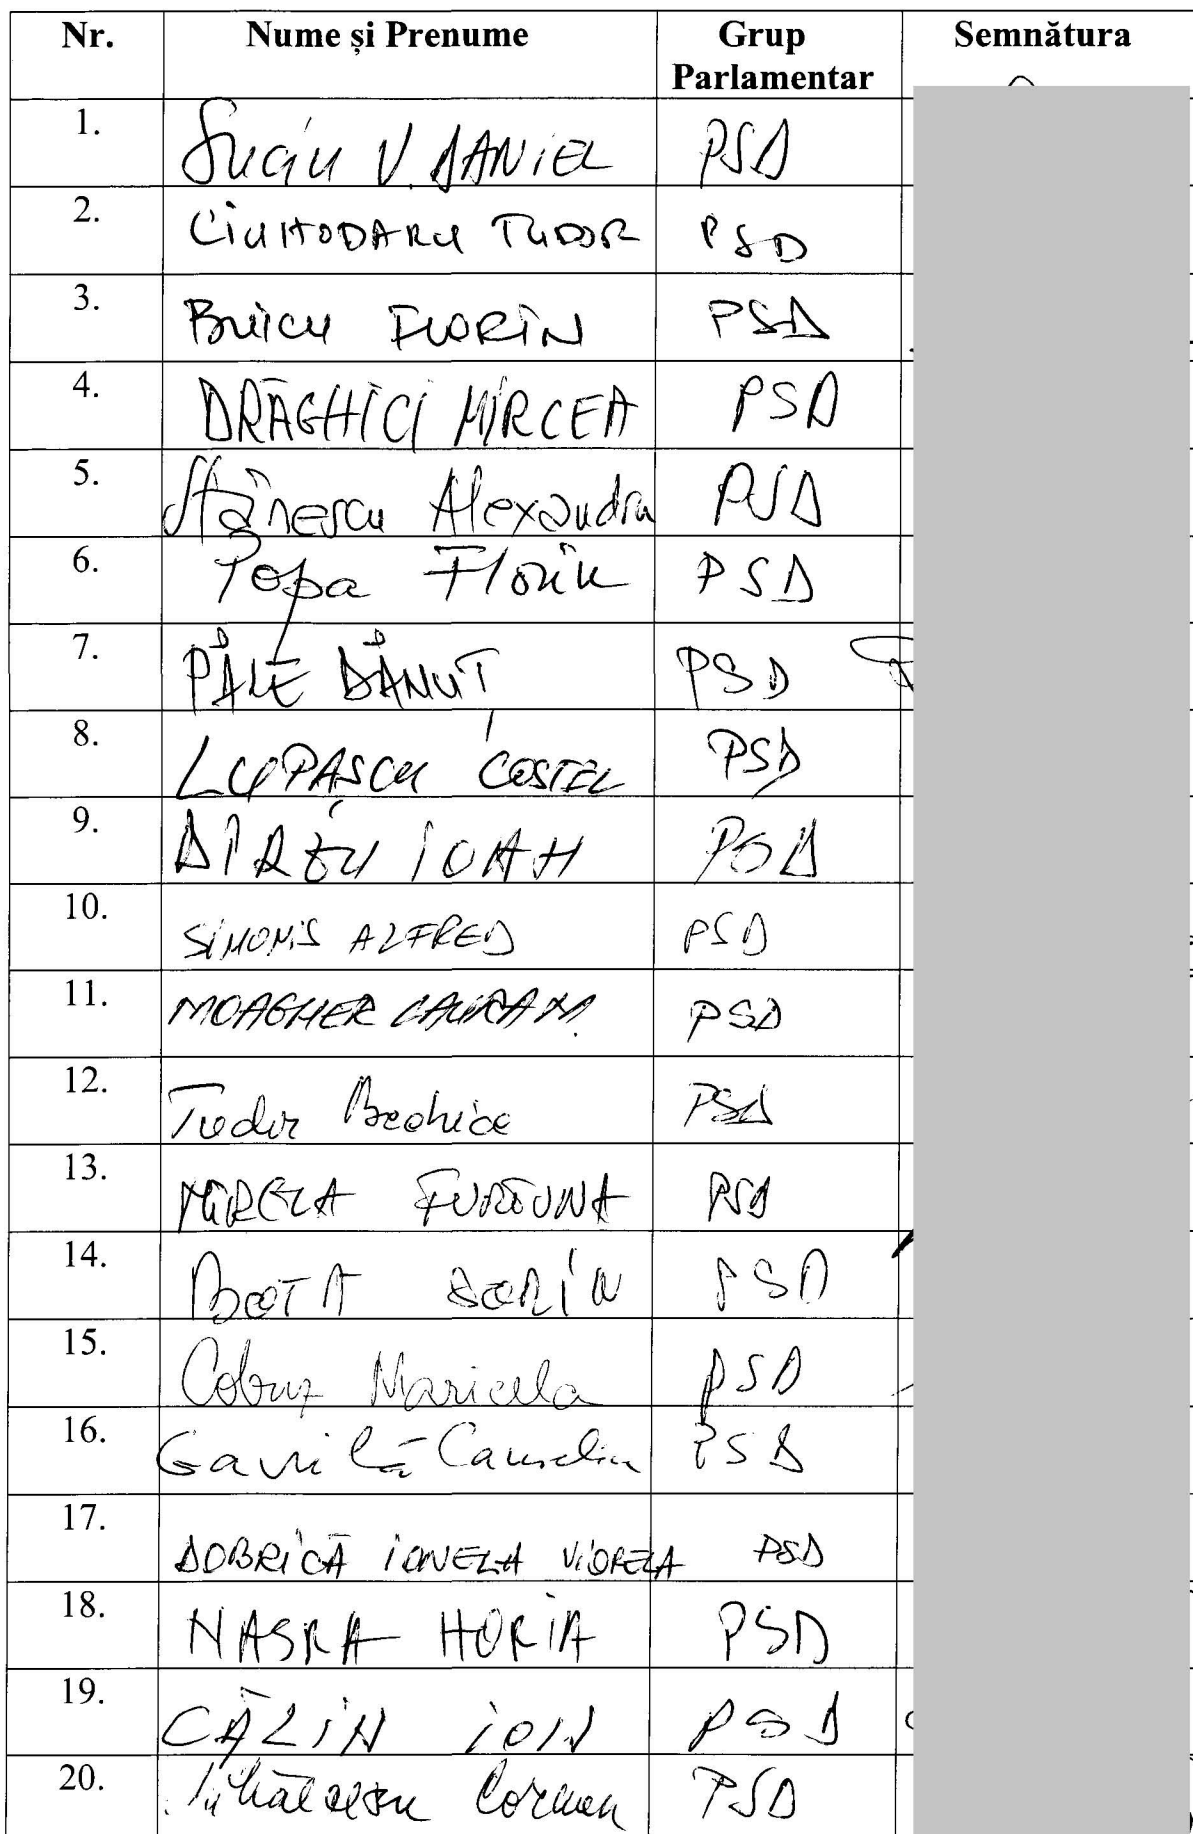 Nr. Nume și Prenume Grup Parlamentar Semnătura
1. Suciu V. DANIEL PSD
2. CIUHODARU TUDOR PSD
3. Buicu FLORIN PSD
4. DRĂGHICI MIRCEA PSD
5. Stănescu Alexandra PSD
6. Popa Florin PSD
7. PĂLE DĂNUȚ PSD
8. LUPAȘCU COSTEL PSD
9. DÎRZU IOAN PSD
10. SIMONIS ALFRED PSD
11. MOAGHER LAURA M. PSD
12. Tudor Beatrice PSD
13. MIRELA FURTUNĂ PSD
14. BOTA SORIN PSD
15. Cobuz Maricela PSD
16. Gavrilă Camelia PSD
17. DOBRICĂ IONELA VIORELA PSD
18. NASRA HORIA PSD
19. CĂLIN ION PSD
20. Mihălcescu Carmen PSD